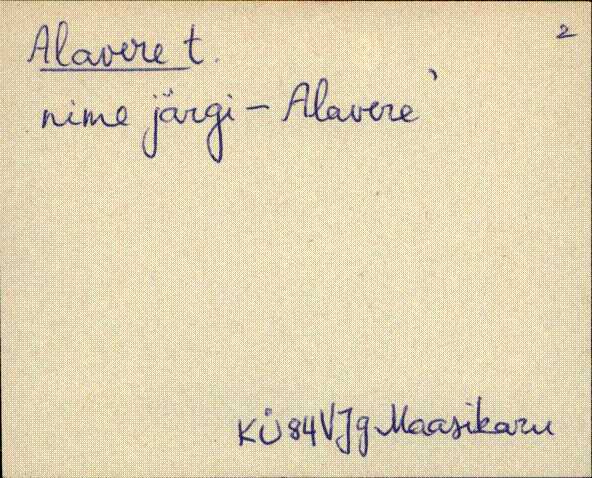 Alavere t. 2
nime järgi - Alavere`
KÜ 84 VJg Maasikaru